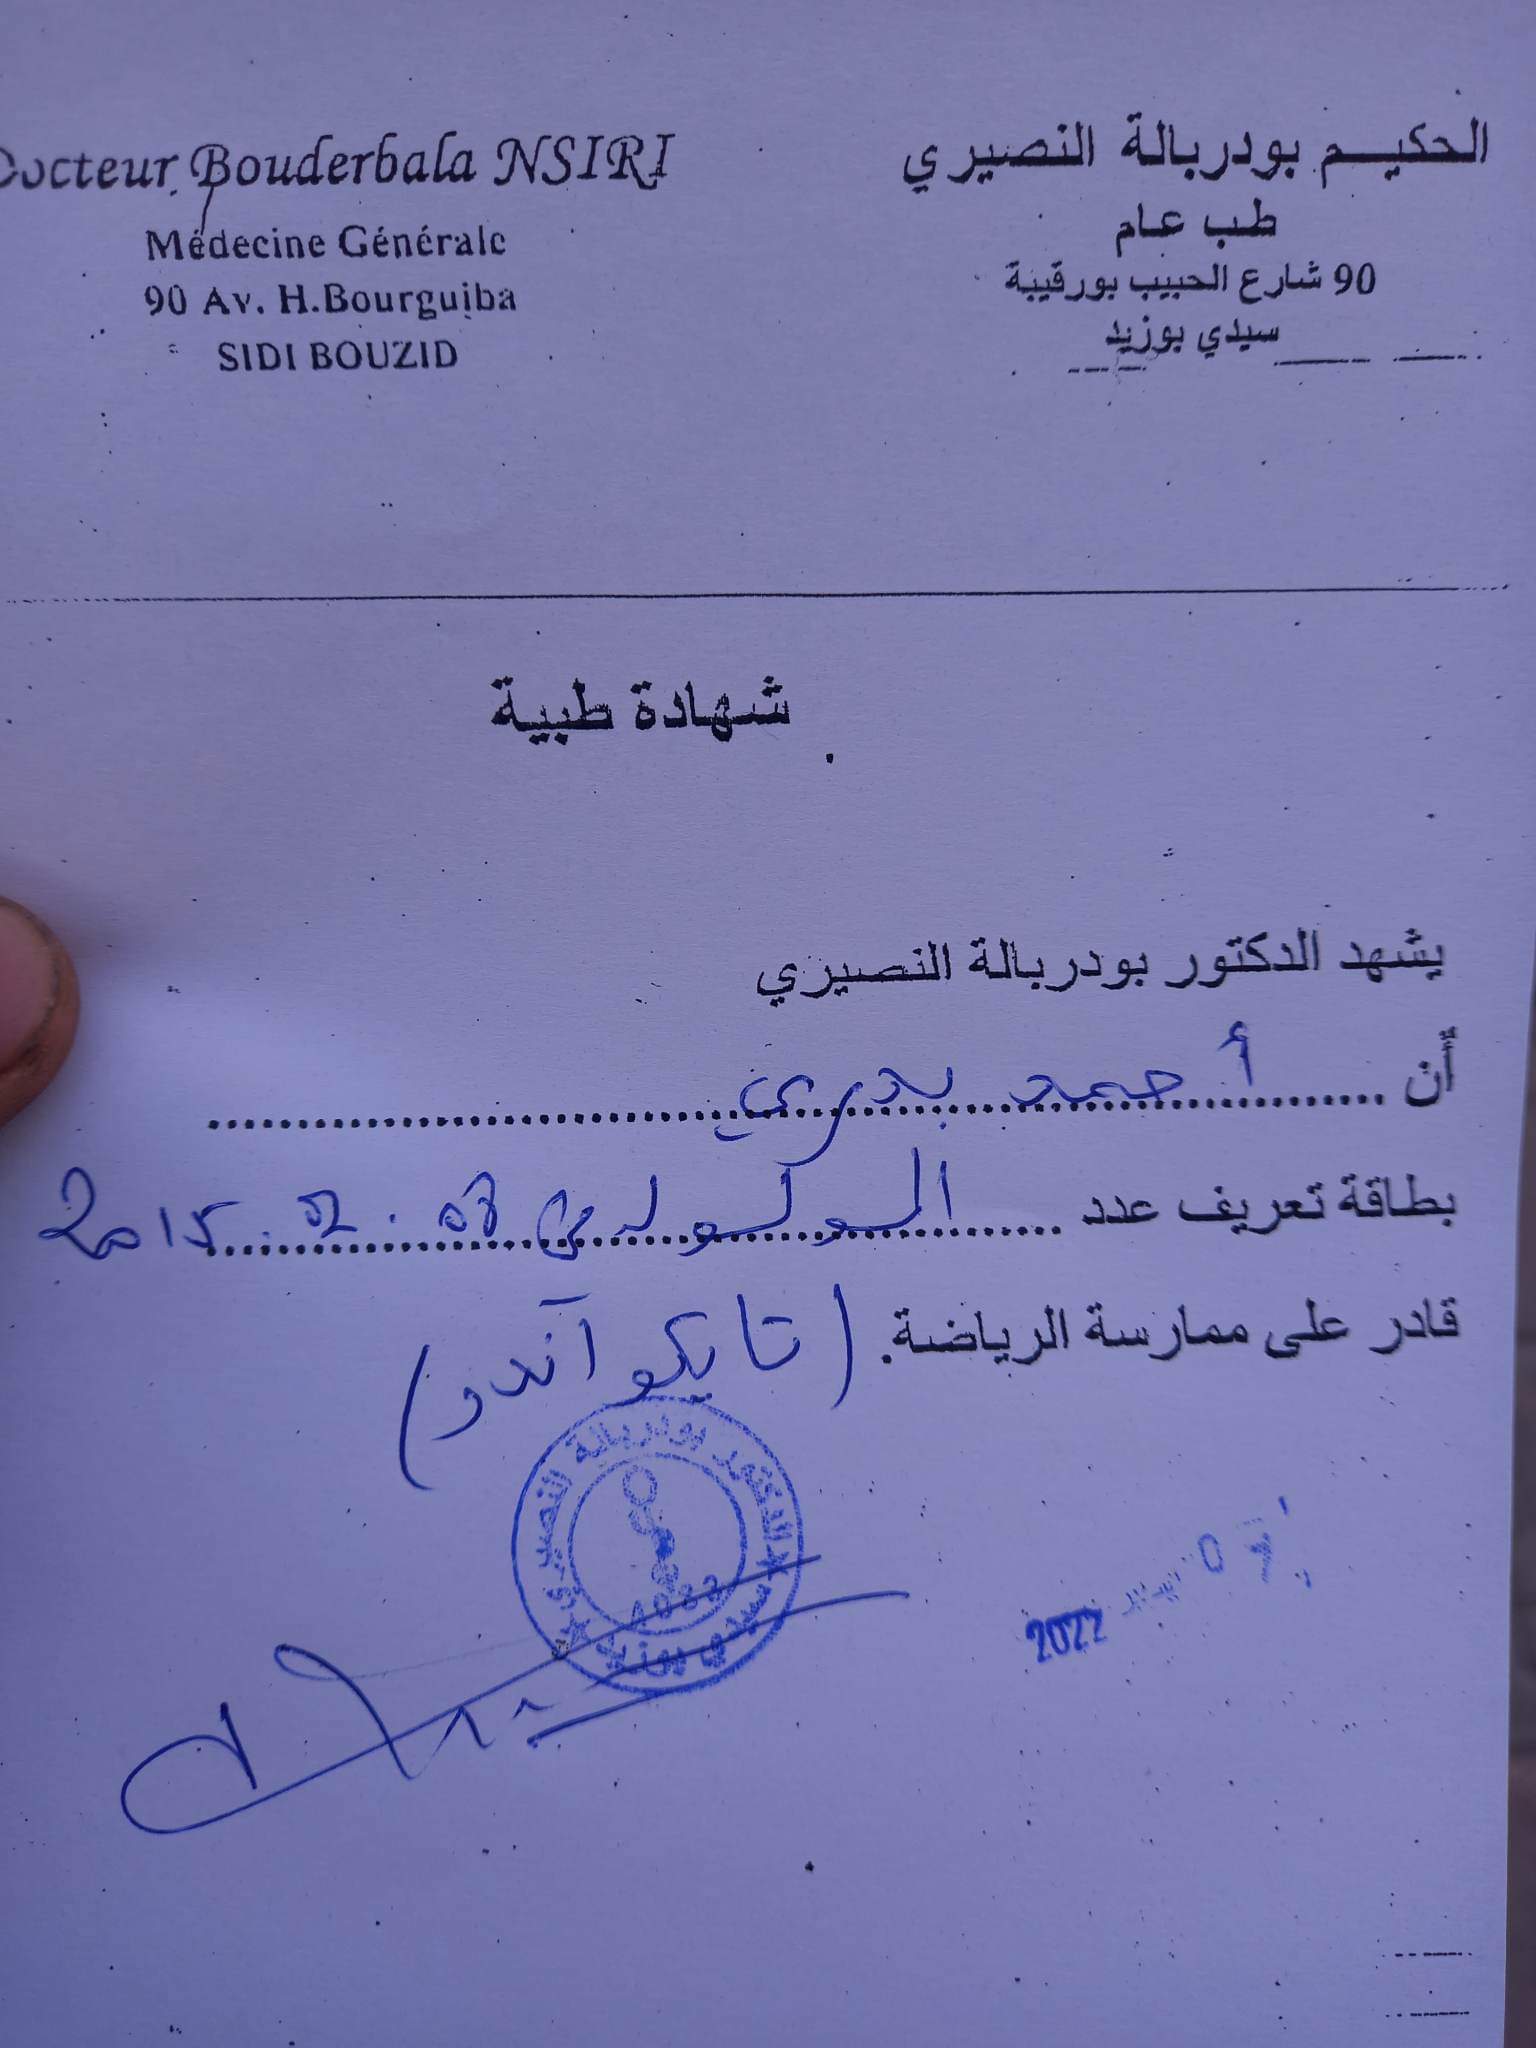 Docteur Bouderbala NSIRI
Médecine Générale
90 Av. H.Bourguiba
SIDI BOUZID
الحكيم بودربالة النصيري
طب عام
90 شارع الحبيب بورقيبة
سيدي بوزيد
شهادة طبية
يشهد الدكتور بودربالة النصيري
أن أحمد بدري
بطاقة تعريف عدد المولود في 2015.02.08
قادر على ممارسة الرياضة. (تايكوآندو)
الدكتور بودربالة النصيري
سيدي بوزيد
2022